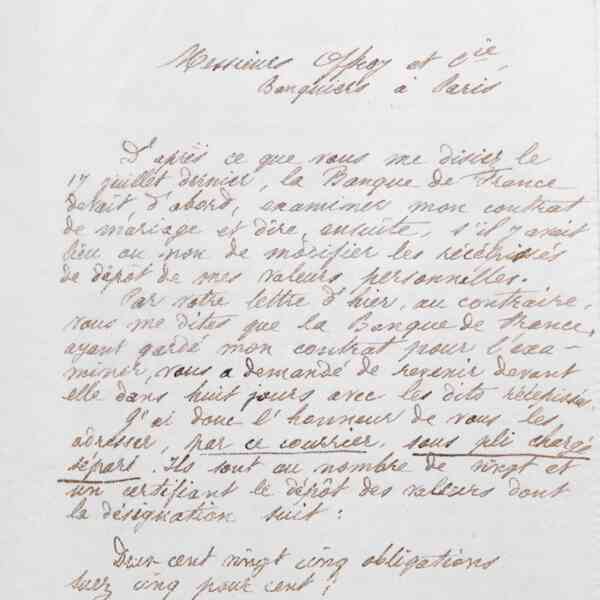 Messieurs Offroy et Cie,
Banquiers à Paris
D'après ce que vous me disiez le
17 juillet dernier, la Banque de France
devait, d'abord, examiner mon contrat
de mariage et dire, ensuite, s'il y avait
lieu ou non de modifier les récépissés
de dépôt de mes valeurs personnelles.
Par votre lettre d'hier, au contraire,
vous me dites que la Banque de France,
ayant gardé mon contrat pour l'exa-
miner, vous a demandé de revenir devant
elle dans huit jours avec les dits récépissés.
J'ai donc l'honneur de vous les
adresser, par ce courrier, sous pli chargé
séparé. Ils sont au nombre de vingt et
un certifiant le dépôt des valeurs dont
la désignation suit :
Deux cent vingt cinq obligations
Suez cinq pour cent ;